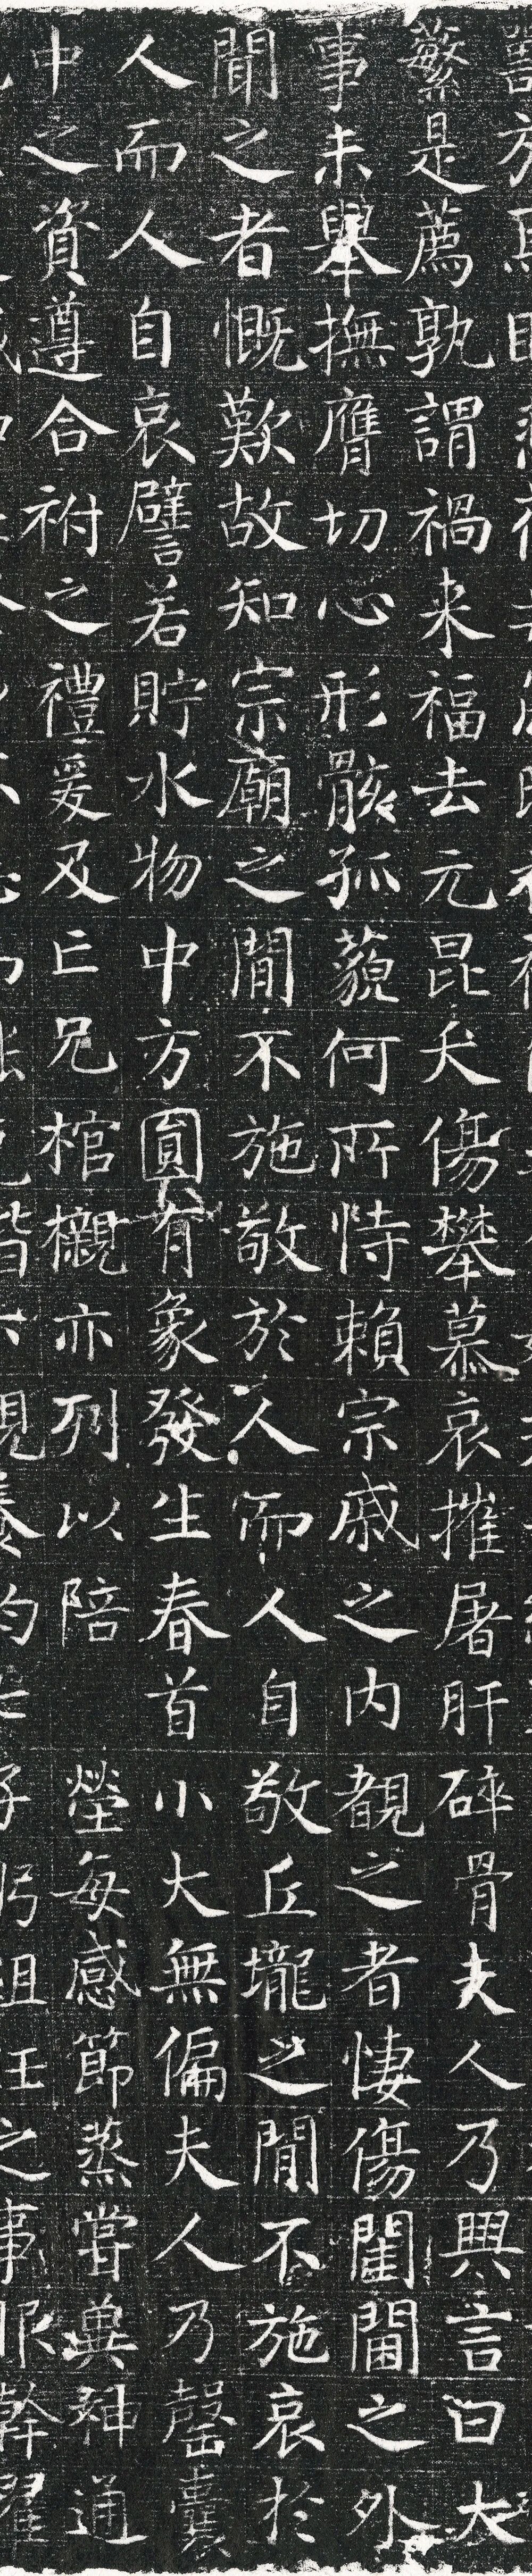 繁是薦孰謂禍来福去元昆夭傷攀慕哀摧屠肝碎骨夫人乃興言曰大
事未舉撫膺切心形骸孤藐何所恃賴宗戚之内覩之者悽傷閨閫之外
聞之者慨歎故知宗廟之間不施敬於人而人自敬丘壠之間不施哀於
人而人自哀譬若貯水物中方圓有象發生春首小大無偏夫人乃罄囊
中之資遵合祔之禮爰及亡兄棺櫬亦列以陪　塋每感節蒸嘗冀神通